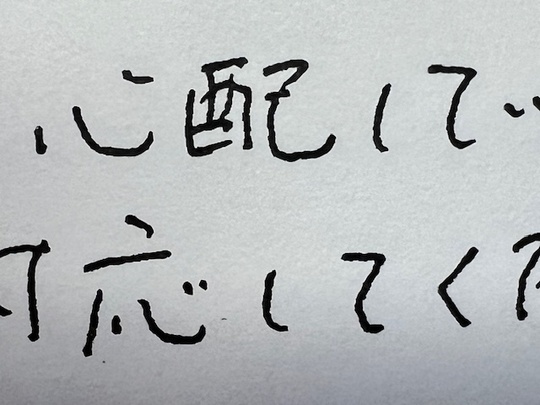 心配して
応してく